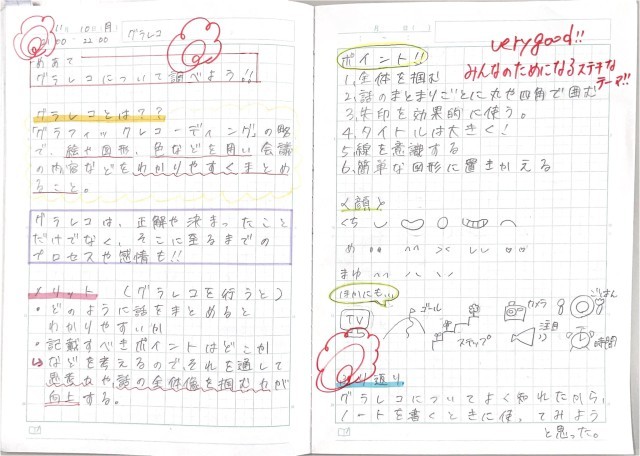 11/10(月) グラレコ
00 - 22:00
めあて
グラレコについて調べよう!!
グラレコとは??
グラフィックレコーディングの略
で、絵や図形、色などを用い会議
の内容などをわかりやすくまとめ
ること。
グラレコは、正解や決まったこと
だけでなく、そこに至るまでの
プロセスや感情も!!
メリット (グラレコを行うと)
・どのように話をまとめると
わかりやすいか
・記載すべきポイントはどこか
などを考えるのでそれを通して
思考力や話の全体像を掴む力が
向上する。
ポイント!!
very good!!
みんなのためになるステキな
テーマ!!
1.全体を掴む
2.話のまとまりごとに丸や四角で囲む
3.矢印を効果的に使う。
4.タイトルは大きく!
5.線を意識する
6.簡単な図形に置きかえる
<顔>
くち
め
まゆ
ほかにも...
TV
ゴール
ステップ
カメラ
注目
ごはん
時間
ふり返り
グラレコについてよく知れたから、
ノートを書くときに使ってみよう
と思った。